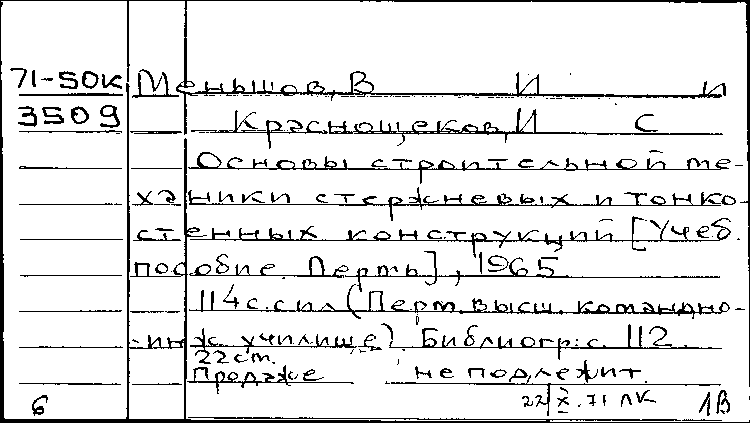 71-50к Меньшов, В И и
3509 Краснощеков, И С
Основы строительной ме-
ханики стержневых и тонко-
стенных конструкций [Учеб.
пособие. Пермь], 1965
114 с. с ил (Перм. высш. командно-
-инж. училище). Библиогр: с. 112.
22 см.
Продаже не подлежит.
6 22/X.71 ЛК 1В